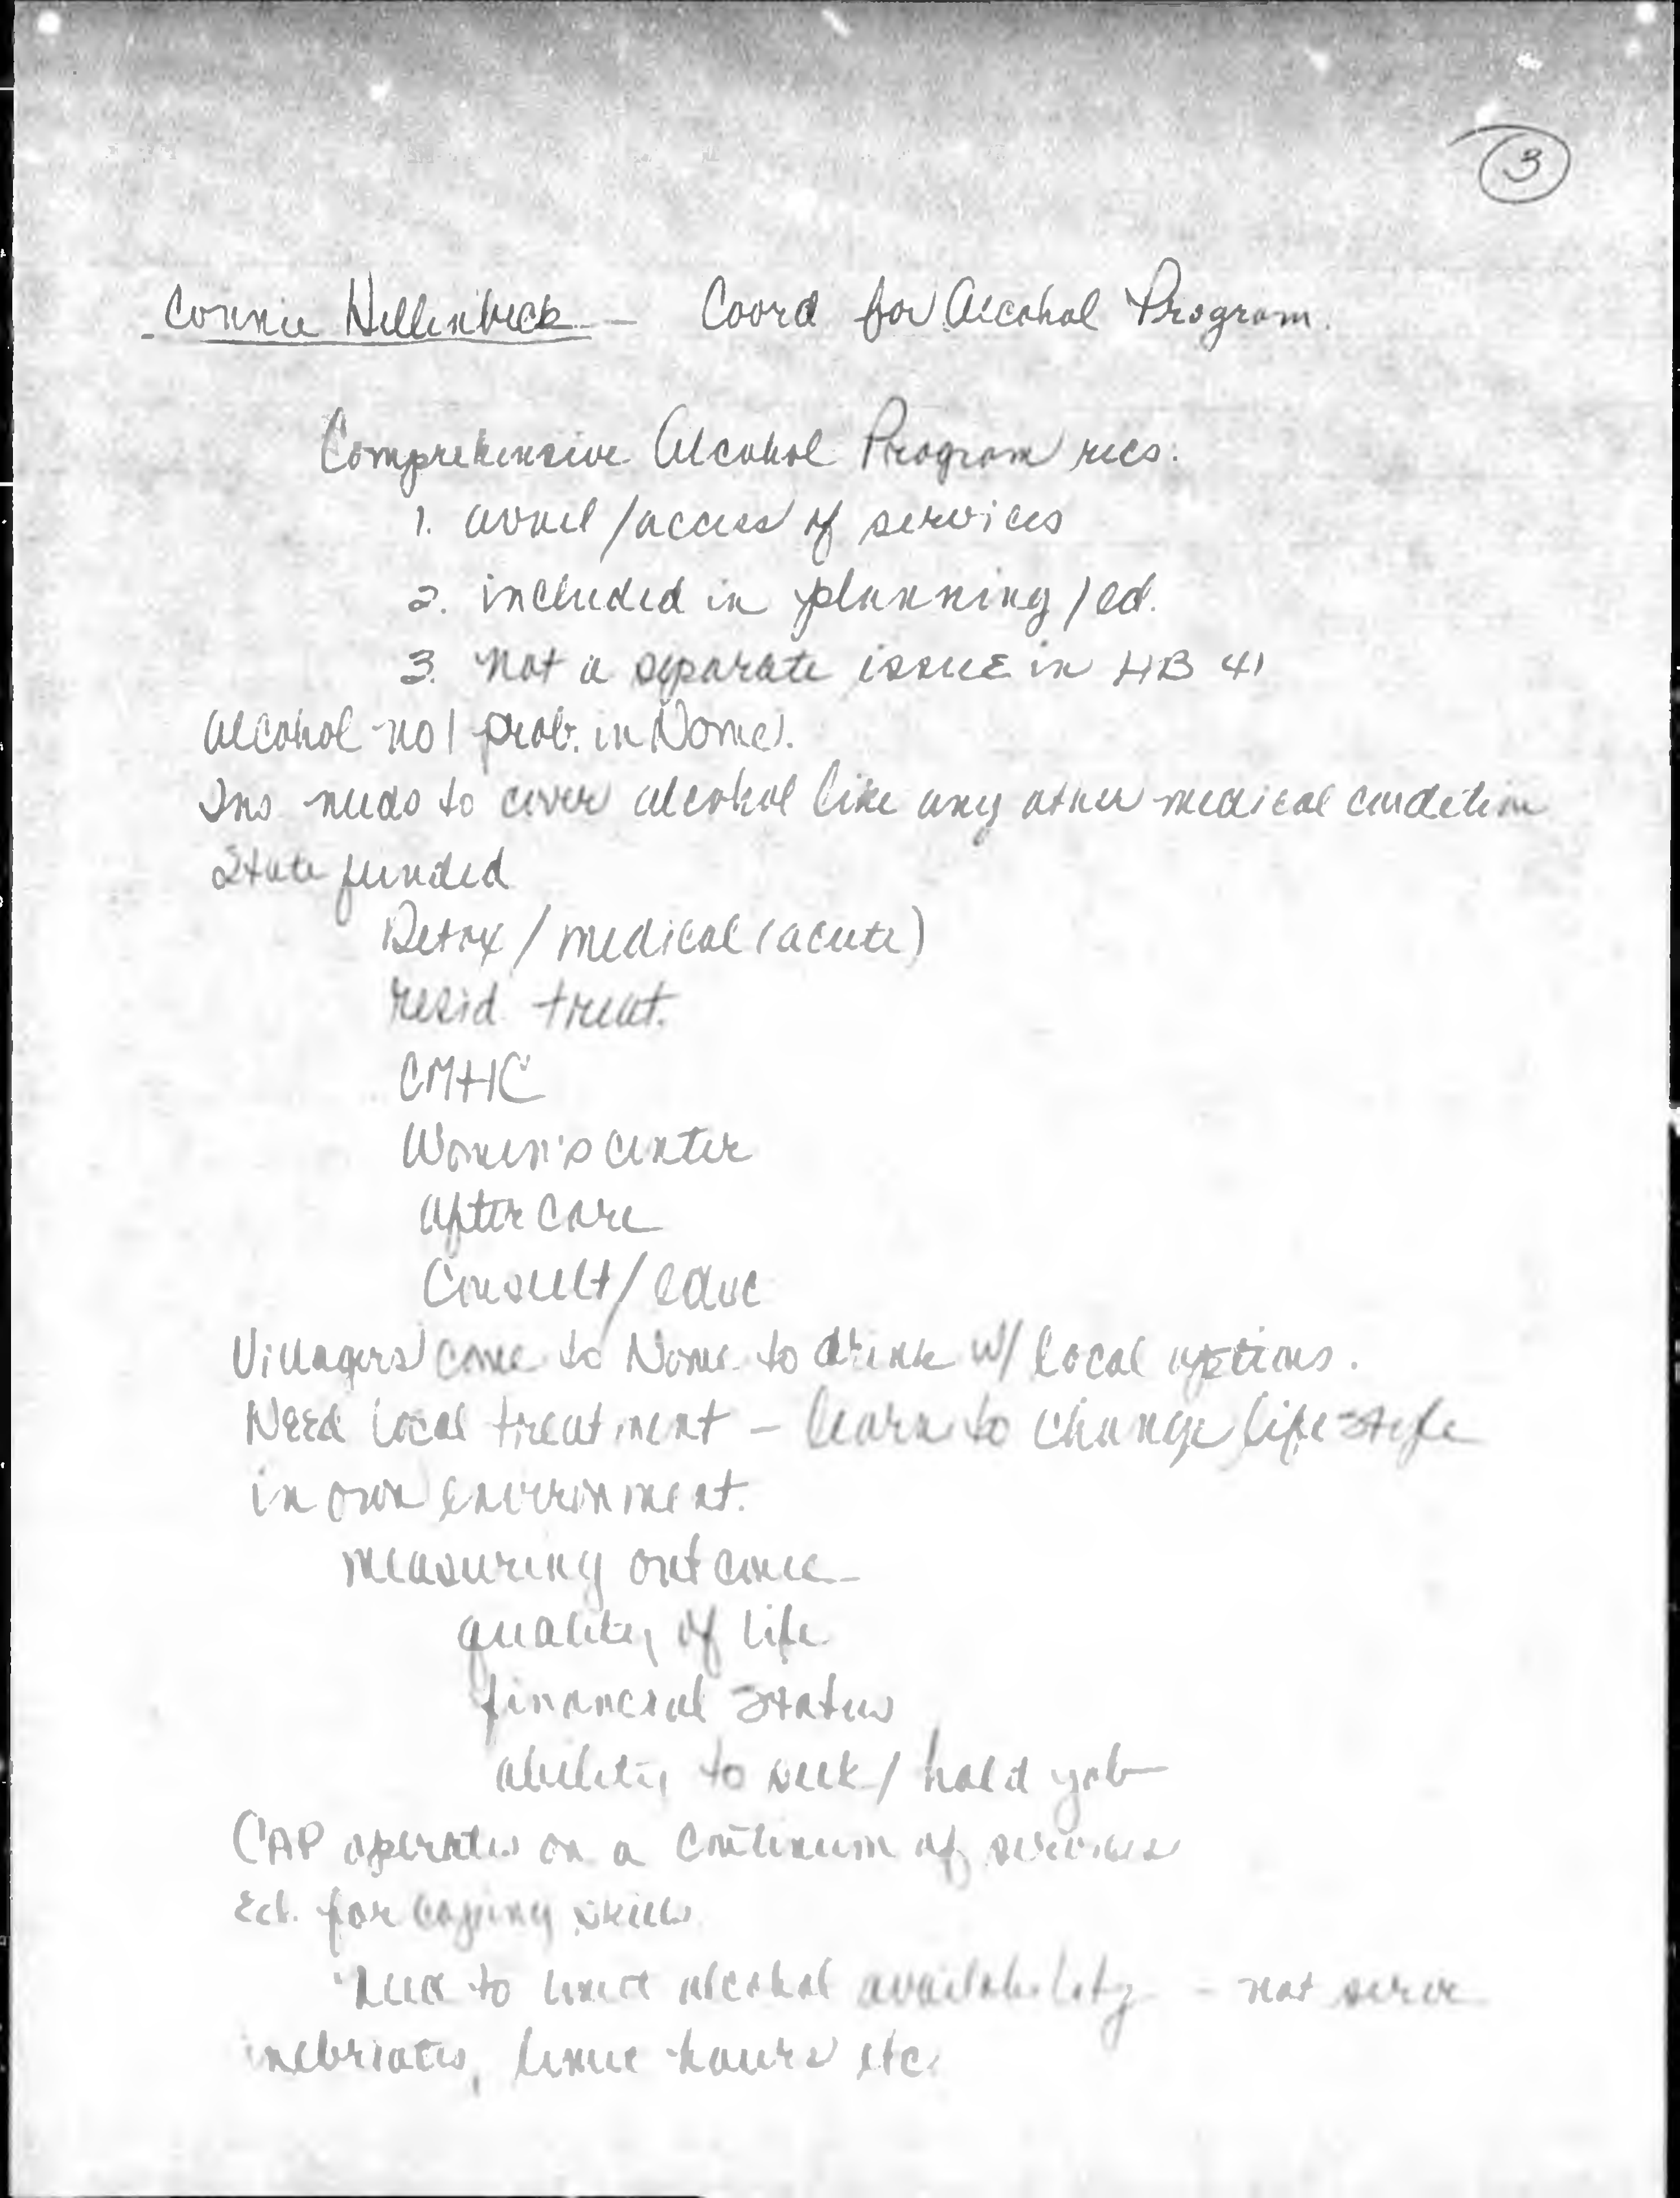 3
Connie Hillenbeck — Coord for Alcohol Program.
Comprehensive Alcohol Program recs:
1. avail/access of services
2. included in planning/ed.
3. not a separate issue in HB 41
Alcohol no 1 prob. in Nome.
Ins needs to cover alcohol like any other medical condition
State funded
Detox / medical (acute)
resid. treat.
CMHC
Women's center
after care
Consult/educ
Villagers come to Nome to drink w/ local options.
Need local treatment — learn to change life style
in own environment.
measuring outcome
quality of life
financial status
ability to seek/hold job
CAP operates on a continuum of services
Ed. for coping skills
to limit alcohol availability - not serve
inebriates, limit hours etc.